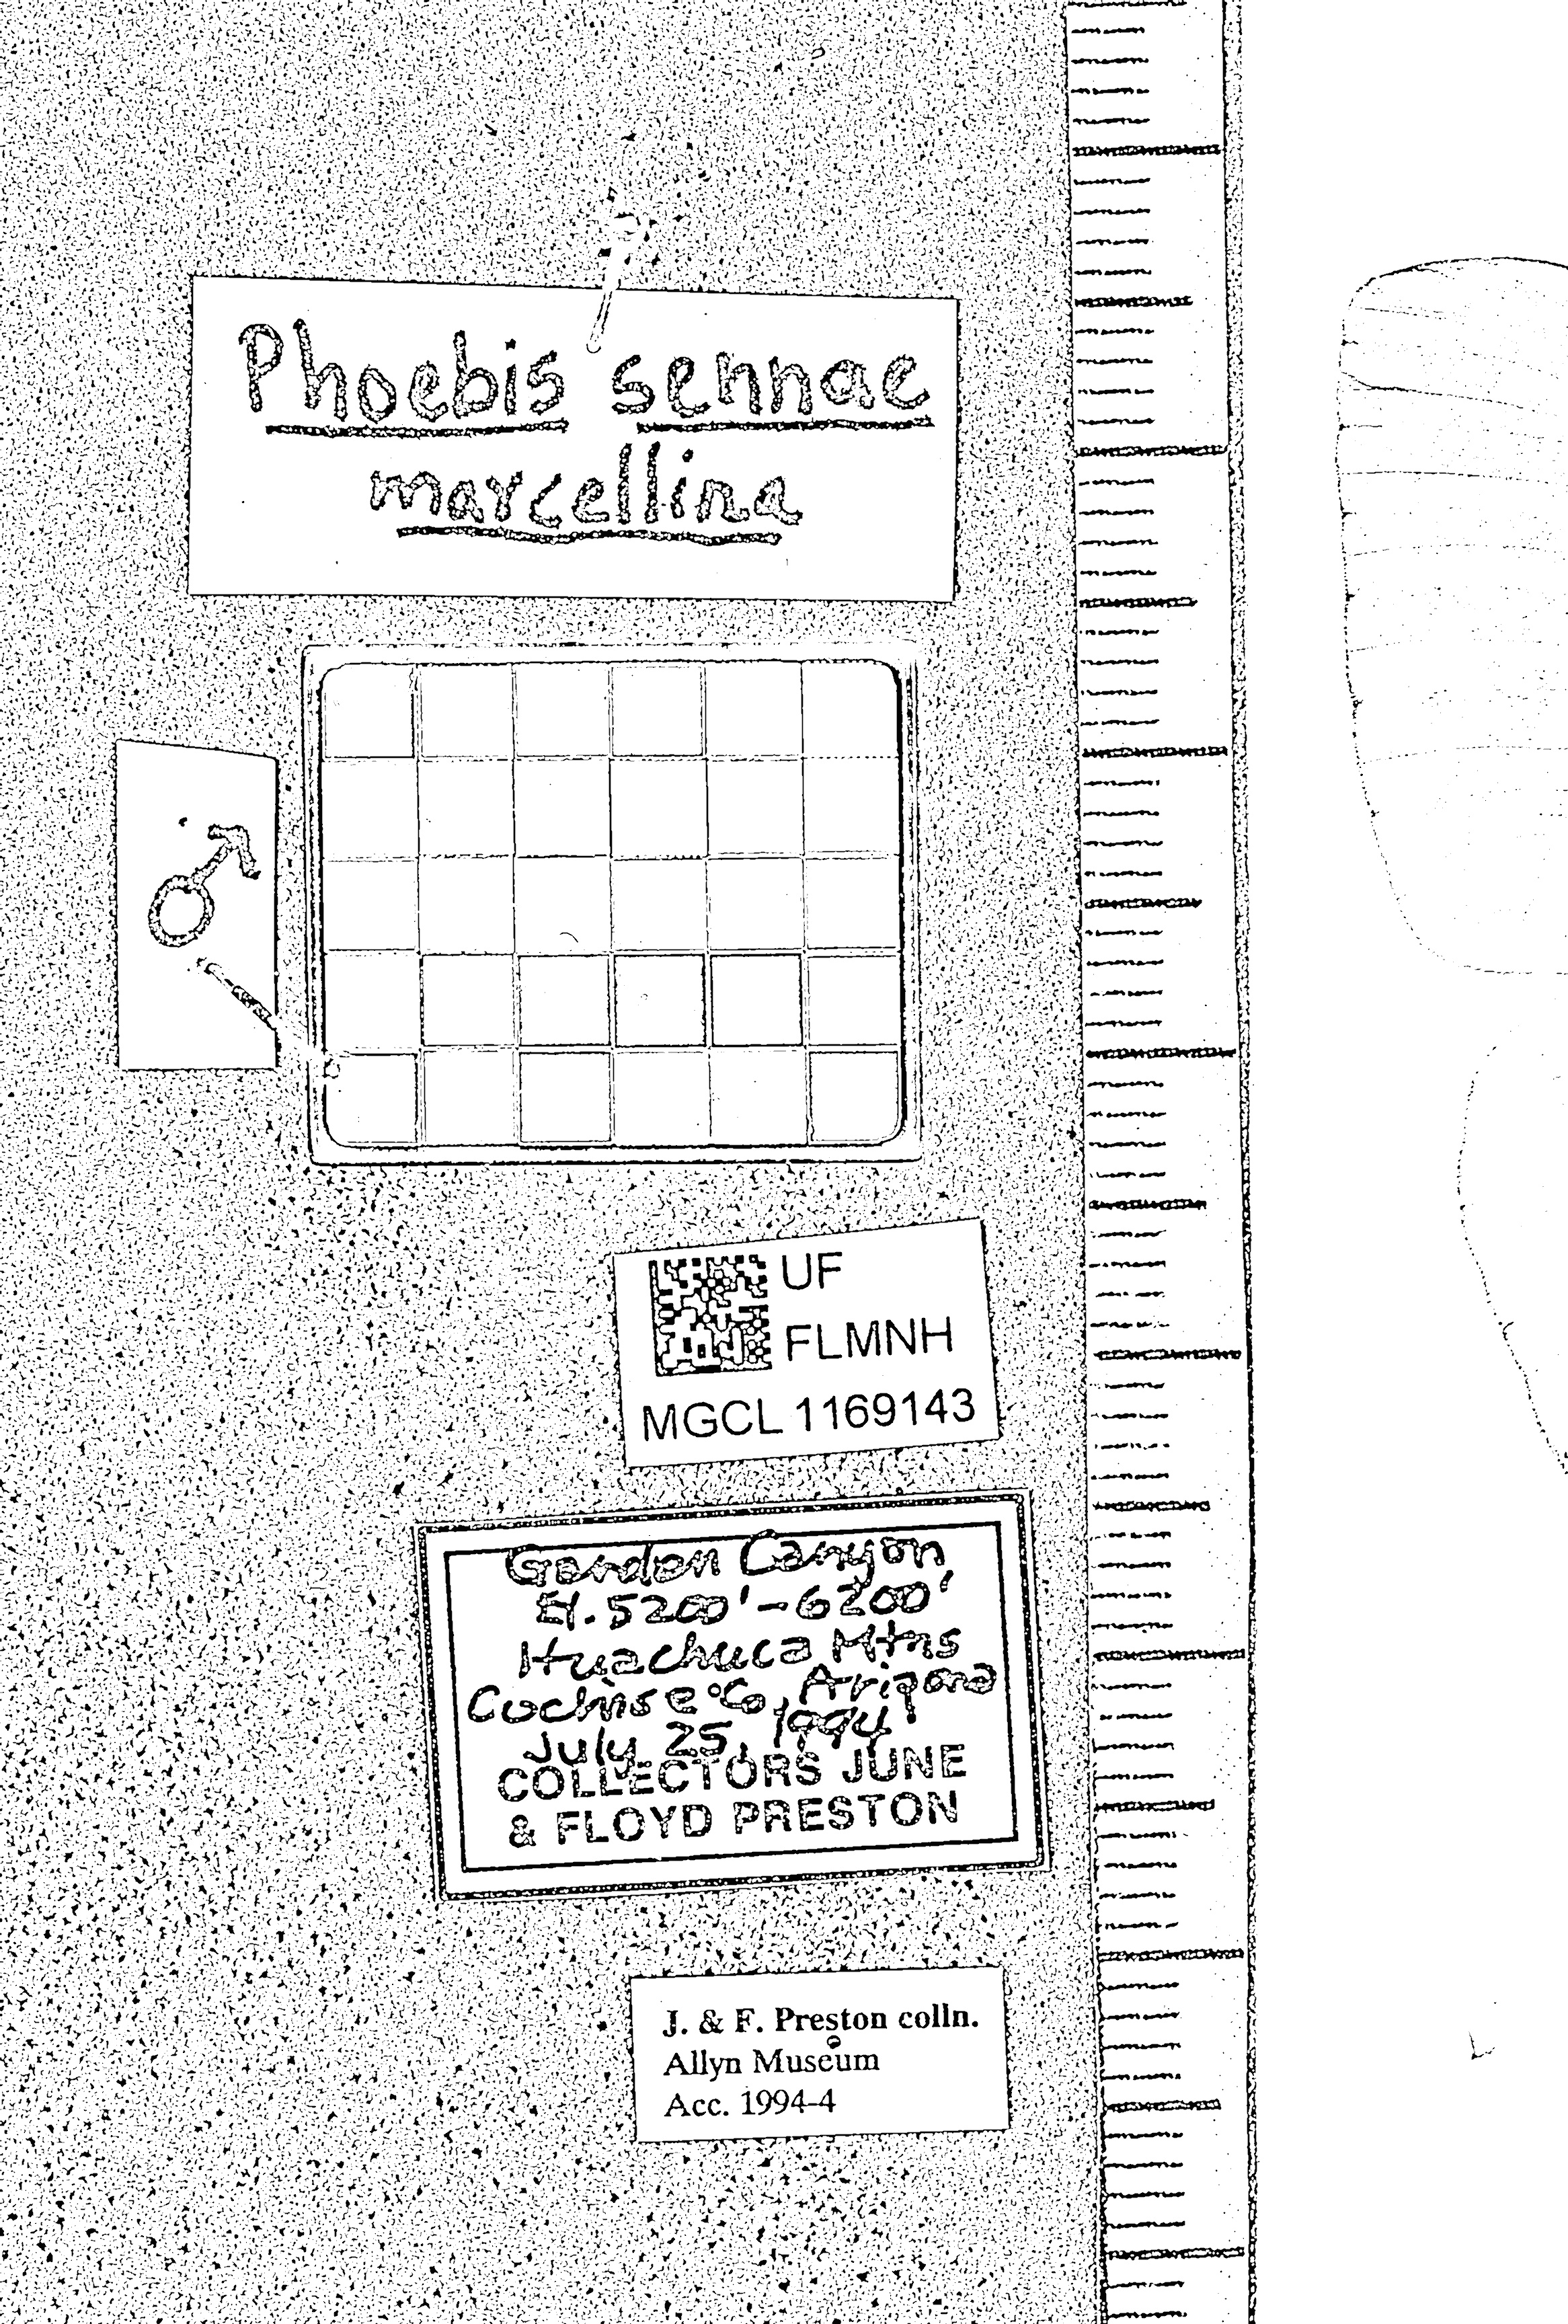 Phoebis sennae
marcellina
♂
UF
FLMNH
MGCL 1169143
Garden Canyon
El. 5200'-6200'
Huachuca Mtns
Cochise Co, Arizona
July 25, 1994
COLLECTORS JUNE
& FLOYD PRESTON
J. & F. Preston colln.
Allyn Museum
Acc. 1994-4